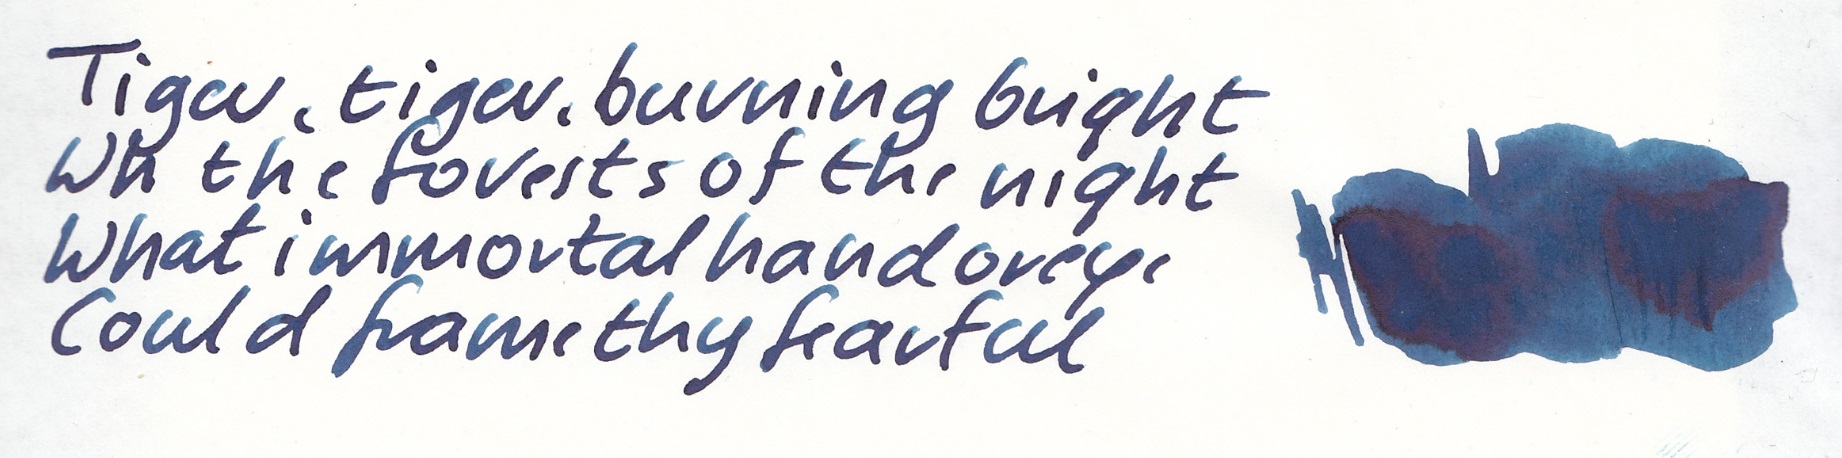 Tiger, tiger, burning bright
Wn the forests of the night
What immortal hand or eye
Could frame thy fearful